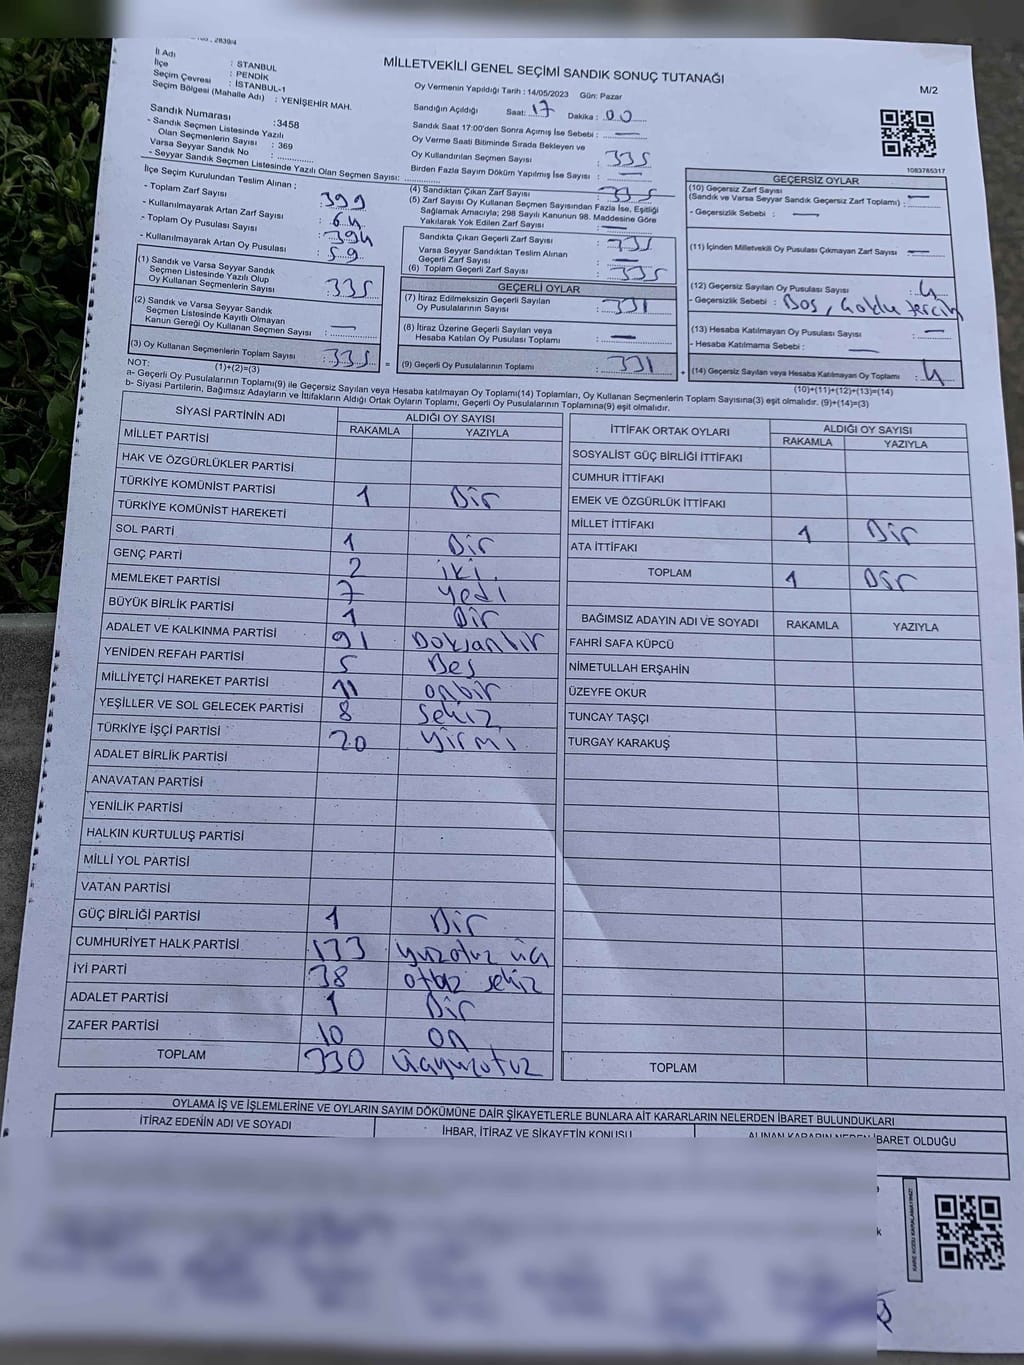 2839/4
MİLLETVEKİLİ GENEL SEÇİMİ SANDIK SONUÇ TUTANAĞI
M/2
İl Adı : STANBUL
İlçe : PENDİK
Seçim Çevresi : İSTANBUL-1
Seçim Bölgesi (Mahalle Adı) : YENİŞEHİR MAH.
Oy Vermenin Yapıldığı Tarih : 14/05/2023 Gün: Pazar
Sandığın Açıldığı Saat: 17 Dakika : 00
Sandık Saat 17:00'den Sonra Açımış İse Sebebi : —
Oy Verme Saati Bitiminde Sırada Bekleyen ve
Oy Kullandırılan Seçmen Sayısı : 335
Birden Fazla Sayım Döküm Yapılmış İse Sayısı : —
Sandık Numarası : 3458
- Sandık Seçmen Listesinde Yazılı
Olan Seçmenlerin Sayısı : 369
Varsa Seyyar Sandık No :
- Seyyar Sandık Seçmen Listesinde Yazılı Olan Seçmen Sayısı:
1083785317
İlçe Seçim Kurulundan Teslim Alınan ;
- Toplam Zarf Sayısı : 399
- Kullanılmayarak Artan Zarf Sayısı : 64
- Toplam Oy Pusulası Sayısı : 394
- Kullanılmayarak Artan Oy Pusulası : 59
(1) Sandık ve Varsa Seyyar Sandık
Seçmen Listesinde Yazılı Olup
Oy Kullanan Seçmenlerin Sayısı : 335
(2) Sandık ve Varsa Seyyar Sandık
Seçmen Listesinde Kayıtlı Olmayan
Kanun Gereği Oy Kullanan Seçmen Sayısı : —
(3) Oy Kullanan Seçmenlerin Toplam Sayısı : 335
(1)+(2)=(3)
(4) Sandıktan Çıkan Zarf Sayısı : 335
(5) Zarf Sayısı Oy Kullanan Seçmen Sayısından Fazla İse, Eşitliği
Sağlamak Amacıyla; 298 Sayılı Kanunun 98. Maddesine Göre
Yakılarak Yok Edilen Zarf Sayısı : —
Sandıkta Çıkan Geçerli Zarf Sayısı : 335
Varsa Seyyar Sandıktan Teslim Alınan
Geçerli Zarf Sayısı : —
(6) Toplam Geçerli Zarf Sayısı : 335
GEÇERLİ OYLAR
(7) İtiraz Edilmeksizin Geçerli Sayılan
Oy Pusulalarının Sayısı : 331
(8) İtiraz Üzerine Geçerli Sayılan veya
Hesaba Katılan Oy Pusulası Toplamı : —
= (9) Geçerli Oy Pusulalarının Toplamı : 331
GEÇERSİZ OYLAR
(10) Geçersiz Zarf Sayısı
(Sandık ve Varsa Seyyar Sandık Geçersiz Zarf Toplamı) : —
- Geçersizlik Sebebi : —
(11) İçinden Milletvekili Oy Pusulası Çıkmayan Zarf Sayısı : —
(12) Geçersiz Sayılan Oy Pusulası Sayısı : 4
- Geçersizlik Sebebi : Boş, Çoklu tercih
(13) Hesaba Katılmayan Oy Pusulası Sayısı : —
- Hesaba Katılmama Sebebi : —
+ (14) Geçersiz Sayılan veya Hesaba Katılmayan Oy Toplamı : 4
(10)+(11)+(12)+(13)=(14)
NOT:
a- Geçerli Oy Pusulalarının Toplamı(9) ile Geçersiz Sayılan veya Hesaba katılmayan Oy Toplamı(14) Toplamları, Oy Kullanan Seçmenlerin Toplam Sayısına(3) eşit olmalıdır. (9)+(14)=(3)
b- Siyasi Partilerin, Bağımsız Adayların ve İttifakların Aldığı Ortak Oyların Toplamı, Geçerli Oy Pusulalarının Toplamına(9) eşit olmalıdır.
SİYASİ PARTİNİN ADI ALDIĞI OY SAYISI
RAKAMLA YAZIYLA
MİLLET PARTİSİ
HAK VE ÖZGÜRLÜKLER PARTİSİ
TÜRKİYE KOMÜNİST PARTİSİ 1 Bir
TÜRKİYE KOMÜNİST HAREKETİ
SOL PARTİ 1 Bir
GENÇ PARTİ 2 iki
MEMLEKET PARTİSİ 7 yedi
BÜYÜK BİRLİK PARTİSİ 1 Bir
ADALET VE KALKINMA PARTİSİ 91 Doksanbir
YENİDEN REFAH PARTİSİ 5 Beş
MİLLİYETÇİ HAREKET PARTİSİ 11 onbir
YEŞİLLER VE SOL GELECEK PARTİSİ 8 sekiz
TÜRKİYE İŞÇİ PARTİSİ 20 yirmi
ADALET BİRLİK PARTİSİ
ANAVATAN PARTİSİ
YENİLİK PARTİSİ
HALKIN KURTULUŞ PARTİSİ
MİLLİ YOL PARTİSİ
VATAN PARTİSİ
GÜÇ BİRLİĞİ PARTİSİ 1 Bir
CUMHURİYET HALK PARTİSİ 133 yüzotuz üç
İYİ PARTİ 38 otuz sekiz
ADALET PARTİSİ 1 Bir
ZAFER PARTİSİ 10 on
TOPLAM 330 üçyüzotuz
İTTİFAK ORTAK OYLARI ALDIĞI OY SAYISI
RAKAMLA YAZIYLA
SOSYALİST GÜÇ BİRLİĞİ İTTİFAKI
CUMHUR İTTİFAKI
EMEK VE ÖZGÜRLÜK İTTİFAKI
MİLLET İTTİFAKI 1 Bir
ATA İTTİFAKI
TOPLAM 1 Bir
BAĞIMSIZ ADAYIN ADI VE SOYADI RAKAMLA YAZIYLA
FAHRİ SAFA KÜPCÜ
NİMETULLAH ERŞAHİN
ÜZEYFE OKUR
TUNCAY TAŞÇI
TURGAY KARAKUŞ
TOPLAM
OYLAMA İŞ VE İŞLEMLERİNE VE OYLARIN SAYIM DÖKÜMÜNE DAİR ŞİKAYETLERLE BUNLARA AİT KARARLARIN NELERDEN İBARET BULUNDUKLARI
İTİRAZ EDENİN ADI VE SOYADI
İHBAR, İTİRAZ VE ŞİKAYETİN KONUSU
ALINAN KARARIN NEDEN İBARET OLDUĞU
KARE KODU KARALAMAYINIZ!